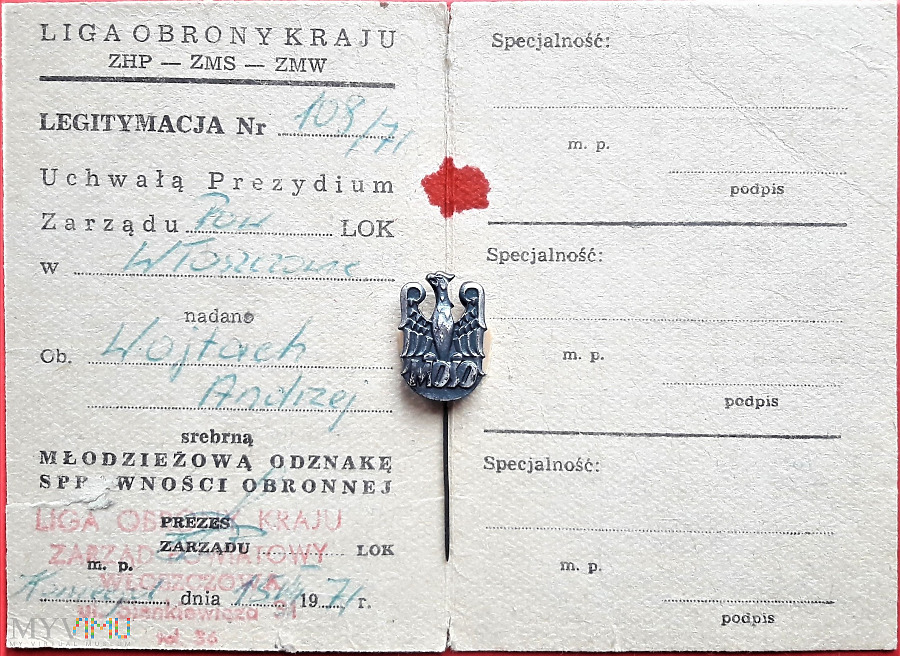 LIGA OBRONY KRAJU
ZHP — ZMS — ZMW
LEGITYMACJA Nr 108/71
Uchwałą Prezydium
Zarządu Pow LOK
w Włoszczowie
nadano
Ob. Wojtach
Andrzej
srebrną
MŁODZIEŻOWĄ ODZNAKĘ
SPR WNOŚCI OBRONNEJ
LIGA OBRONY KRAJU
PREZES
ZARZĄDU LOK
ZARZĄD POWIATOWY
m. p.
WŁOSZCZOWA
dnia 15 1971 r.
ul. Sienkiewicza 31
tel. 36
MYVIMU
MY VIRTUAL MUSEUM
MOSO
Specjalność:
m. p.
podpis
Specjalność:
m. p.
podpis
Specjalność:
m. p.
podpis